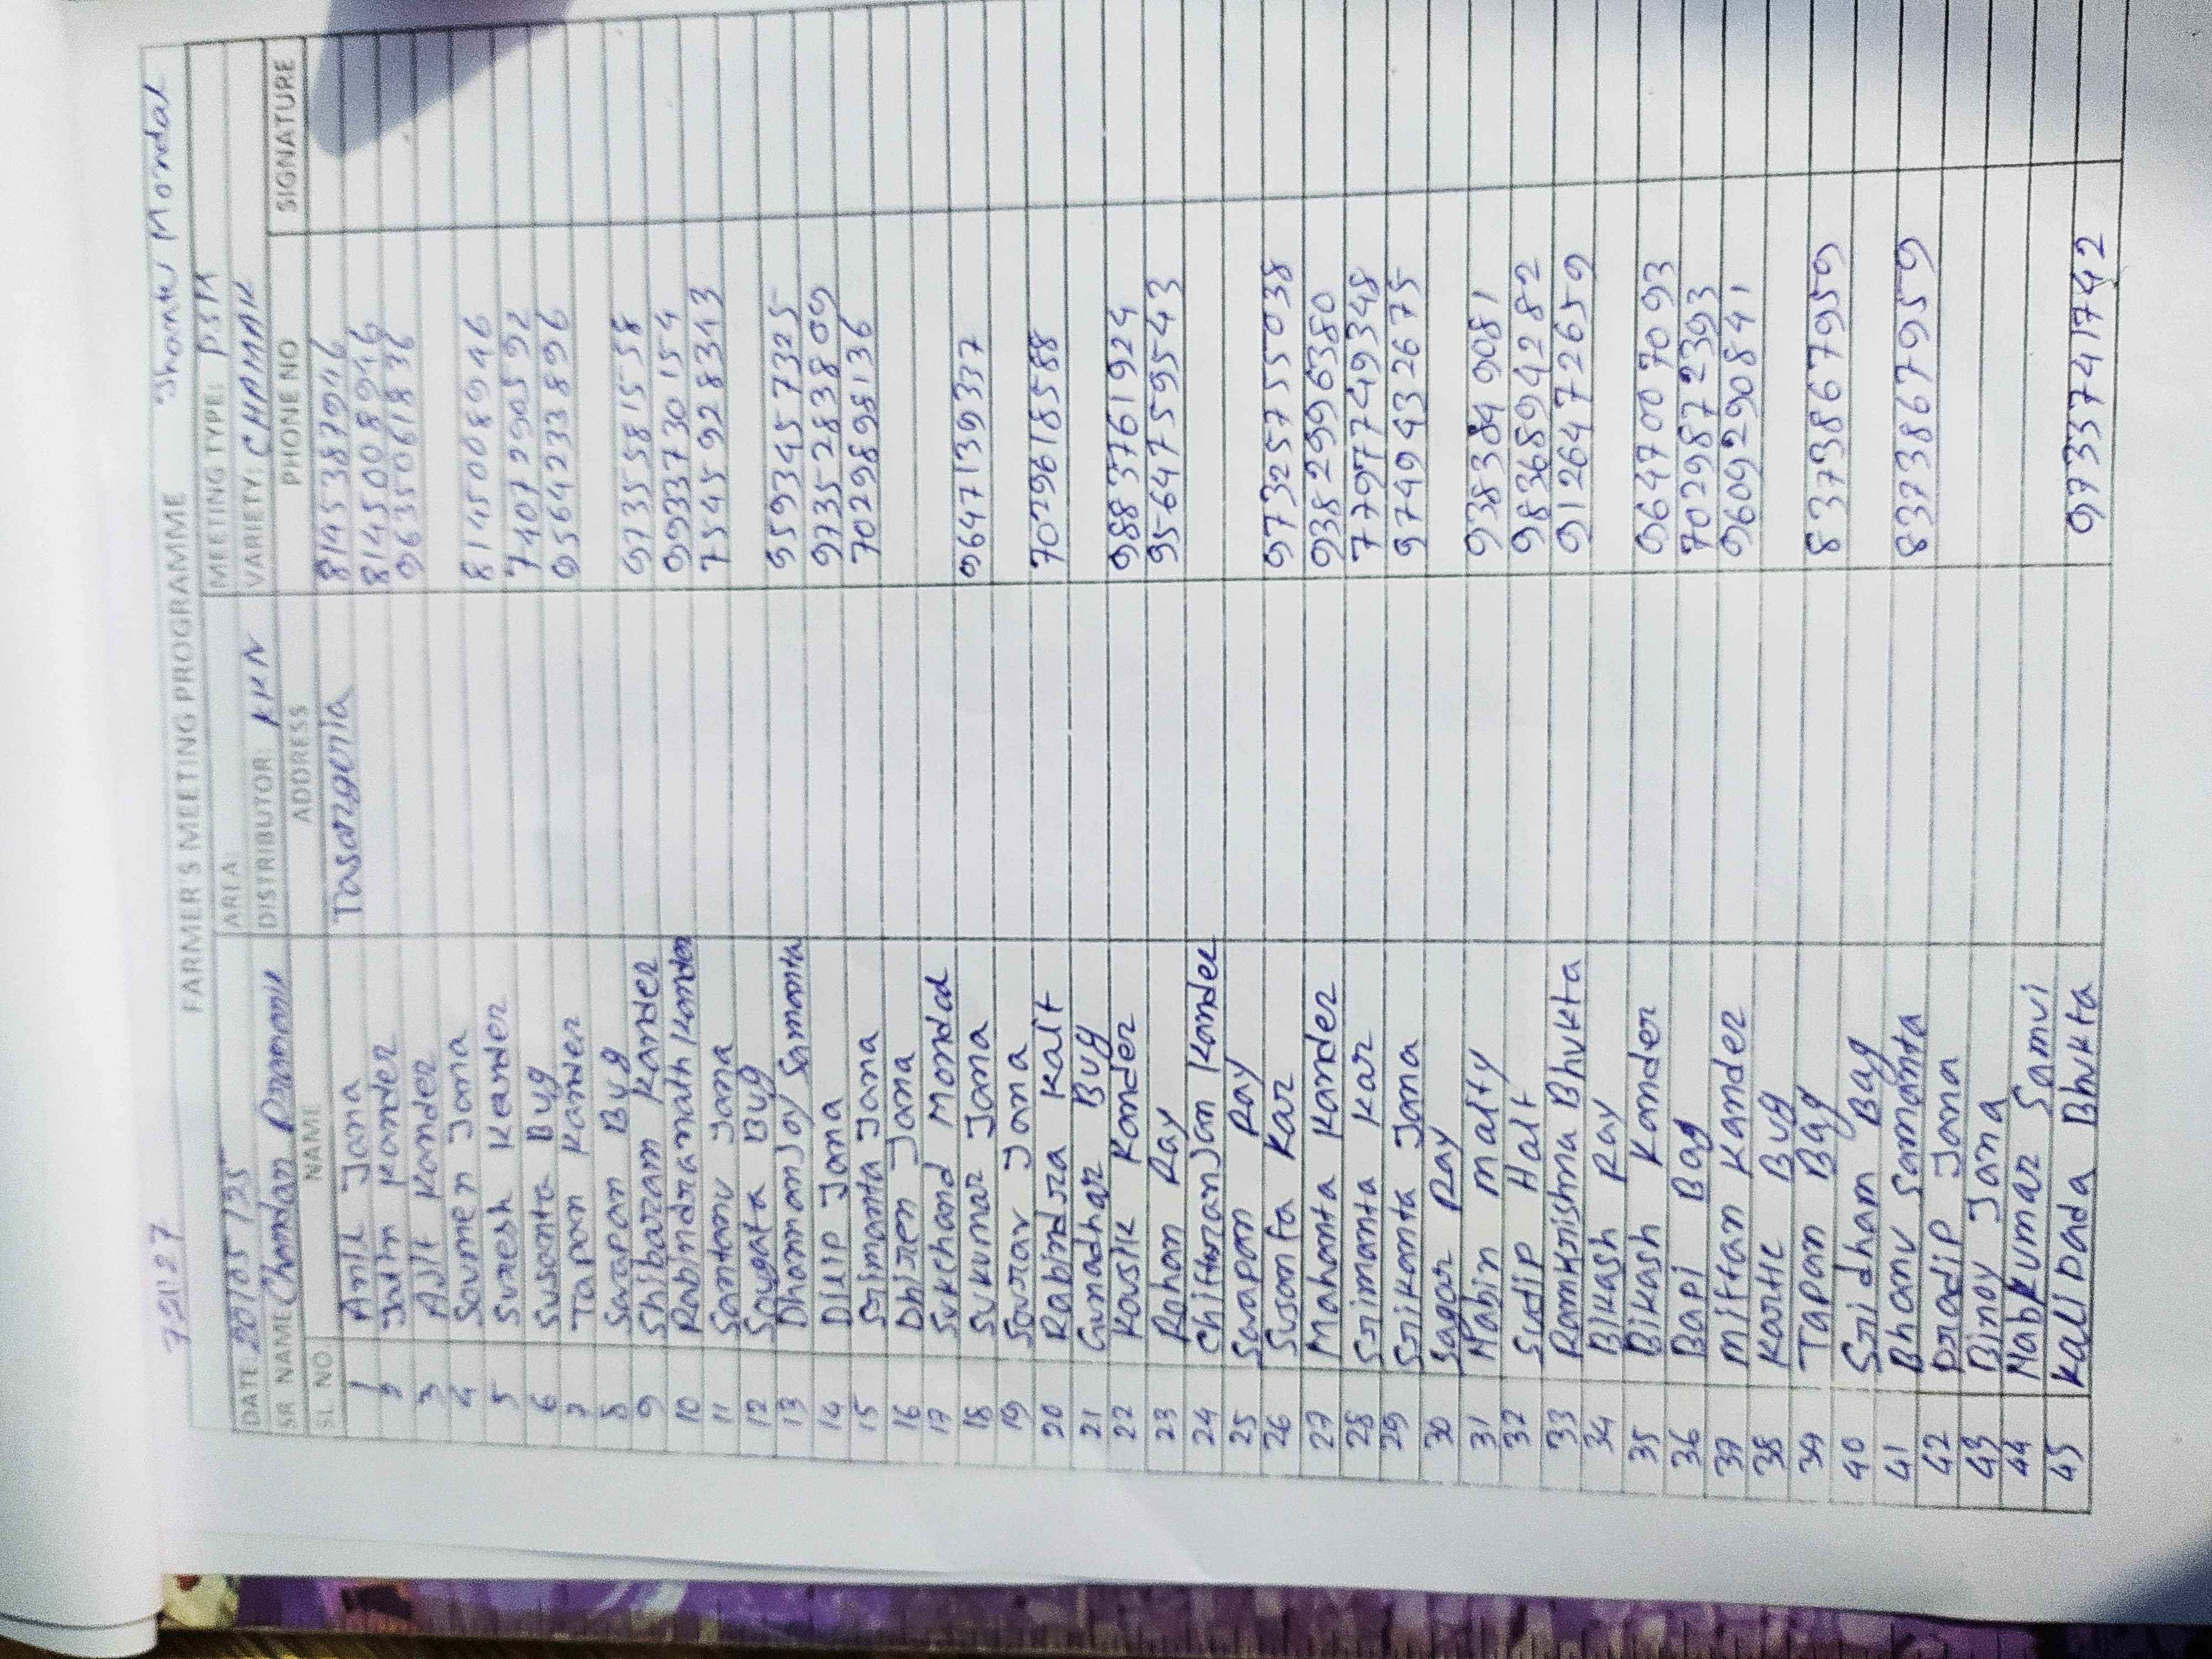 721127 Shantu Mondal
FARMER'S MEETING PROGRAMME
DATE: 20/05/25 AREA: MEETING TYPE: PSM
SR. NAME: Chandan Pramanik DISTRIBUTOR: KKN VARIETY: CHAMAK
SL. NO. NAME ADDRESS PHONE NO SIGNATURE
1 Amit Jana Tasongeria 8145387946
2 Jadu Kander 8145008946
3 Ajit Kander 9635061836
4 Soumen Jana
5 Suresh Kander 8145008946
6 Susanta Bug 7407290592
7 Tapan Kander 9564233896
8 Sarapan Bug
9 Shibaram Kander 9735581558
10 Rabindranath Kander 9933730154
11 Santanu Jana 7545928343
12 Sougata Bug
13 Dhanmanjoy Samanta 9593457325
14 Dilip Jana 9735283809
15 Srimanta Jana 7029895136
16 Dhiren Jana
17 Sukchand Mondal
18 Sukumar Jana 9647139337
19 Sourav Jana
20 Rabindra Kalt 7029618588
21 Gunadhar Bug
22 Kousik Kander 9883761924
23 Rohan Ray 9564759543
24 Chittranjan Kander
25 Sarapan Ray
26 Susanta Kar 9732575038
27 Mahanta Kander 9382996380
28 Srimanta Kar 7797749348
29 Srikanta Jana 9749432675
30 Sagar Ray
31 Nabin Malty 9383849081
32 Sudip Halt 9836894282
33 Ramkrishna Bhukta 9126472659
34 Bikash Ray
35 Bikash Kander 9647007093
36 Bapi Bag 7029872393
37 Mittan Kander 9609290841
38 Kartic Bug
39 Tapan Bag 8373867959
40 Sridham Bag
41 Bhanu Samanta 8373867959
42 Pradip Jana
43 Binoy Jana
44 Nabkumar Samui
45 Kalipada Bhukta 9733741742